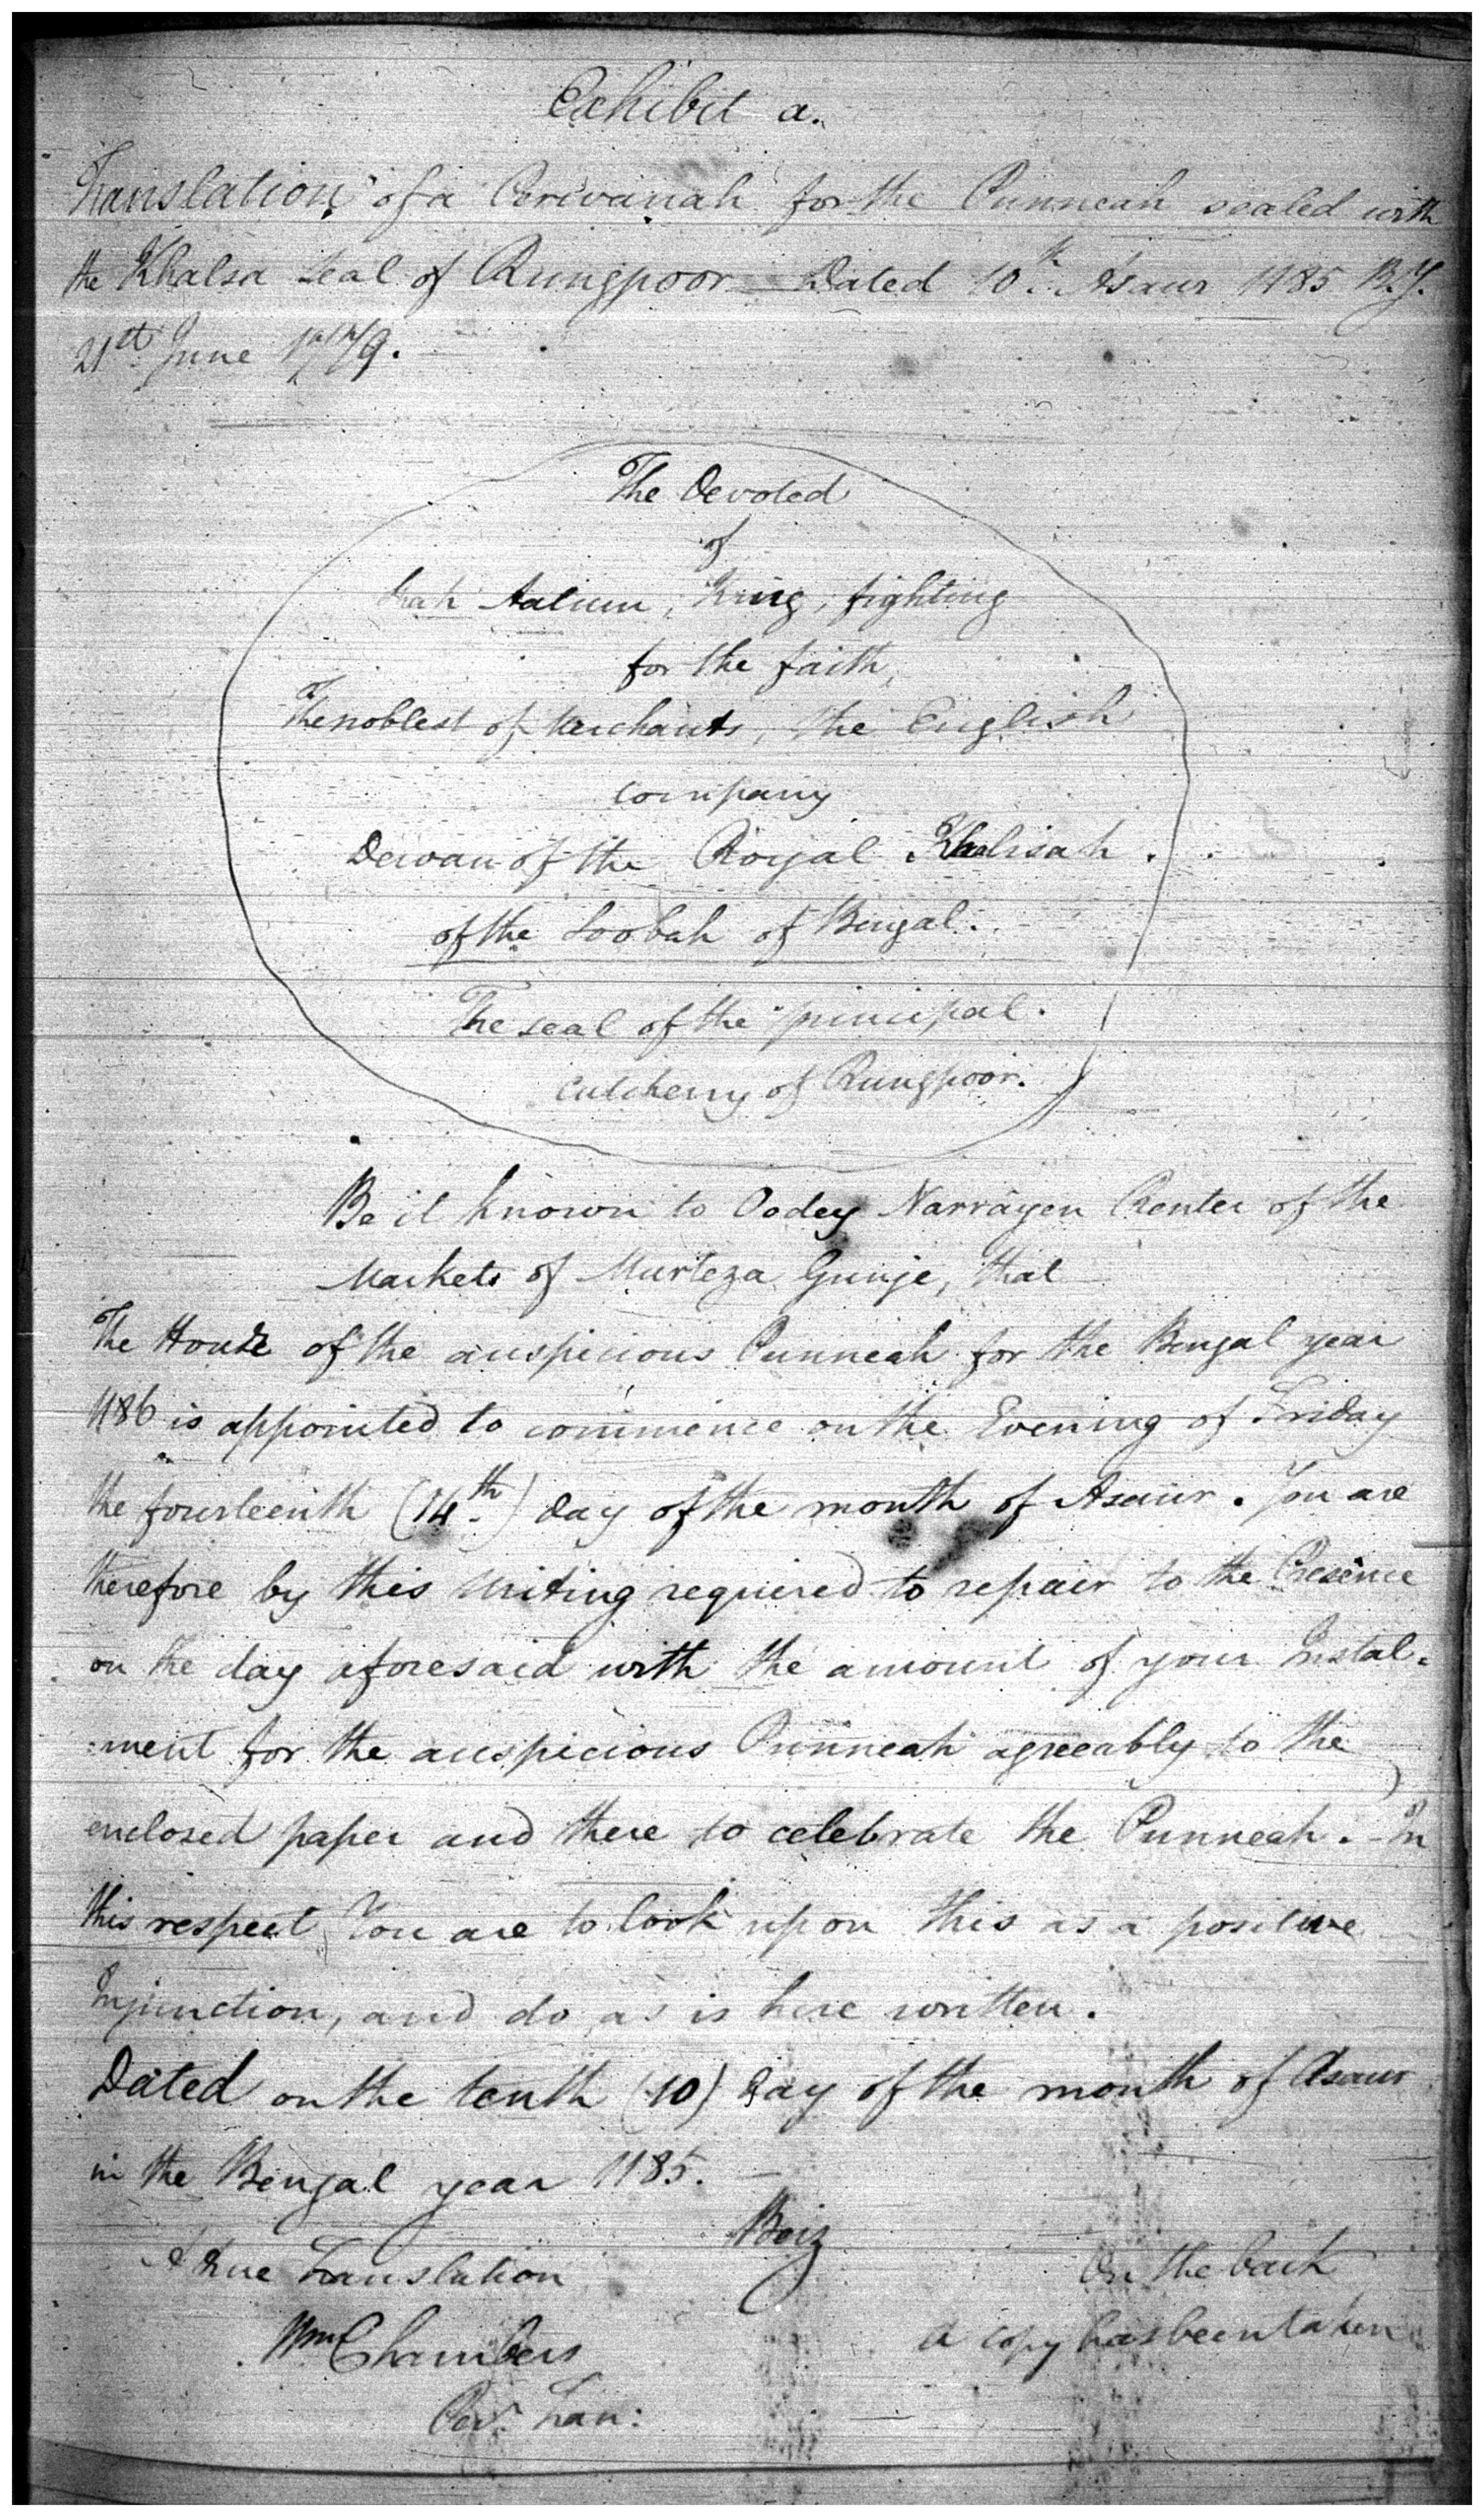 Exhibit a.
Translation of a Perwanah for the Punneah sealed with
the Khalsa Seal of Rungpoor Dated 10th. Asaur 1185 B.Y.
21st June 1779.
The Devoted
of
Shah Aalum, King, fighting
for the faith,
The noblest of Merchants, the English
company
Dewan of the Royal Khalisah.
of the Soobah of Bengal.
The seal of the principal.
Cutcherry of Rungpoor.
Be it known to Oodey Narrayen Renter of the
Markets of Murteza Gunje, that
The House of the auspicious Punneah for the Bengal year
1186 is appointed to commence on the Evening of Friday
the fourteenth (14th.) day of the month of Asaur. You are
therefore by this writing required to repair to the Presence
on the day aforesaid with the amount of your Instal-
-ment for the auspicious Punneah agreeably to the
enclosed paper and there to celebrate the Punneah. - In
this respect You are to look upon this as a positive
Injunction, and do as is here written.
Dated on the tenth (10) Day of the month of Asaur
in the Bengal year 1185.
A true Translation
On the back
Wm Chambers
A copy has been taken
Per. Tran: